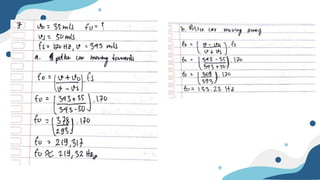 7 v₀ = 35 m/s fo = ?
vs = 50 m/s
fs = 170 Hz, v = 343 m/s
a. If police car moving towards
fo = (v + v₀ / v - vs) fs
fo = (343 + 35 / 343 - 50) . 170
fo = (378 / 293) . 170
fo = 219,317
fo ≈ 219,32 Hz
b. Police car moving away
fo = (v - v₀ / v + vs) fs
fo = (343 - 35 / 343 + 50) . 170
fo = (308 / 393) . 170
fo = 133,23 Hz